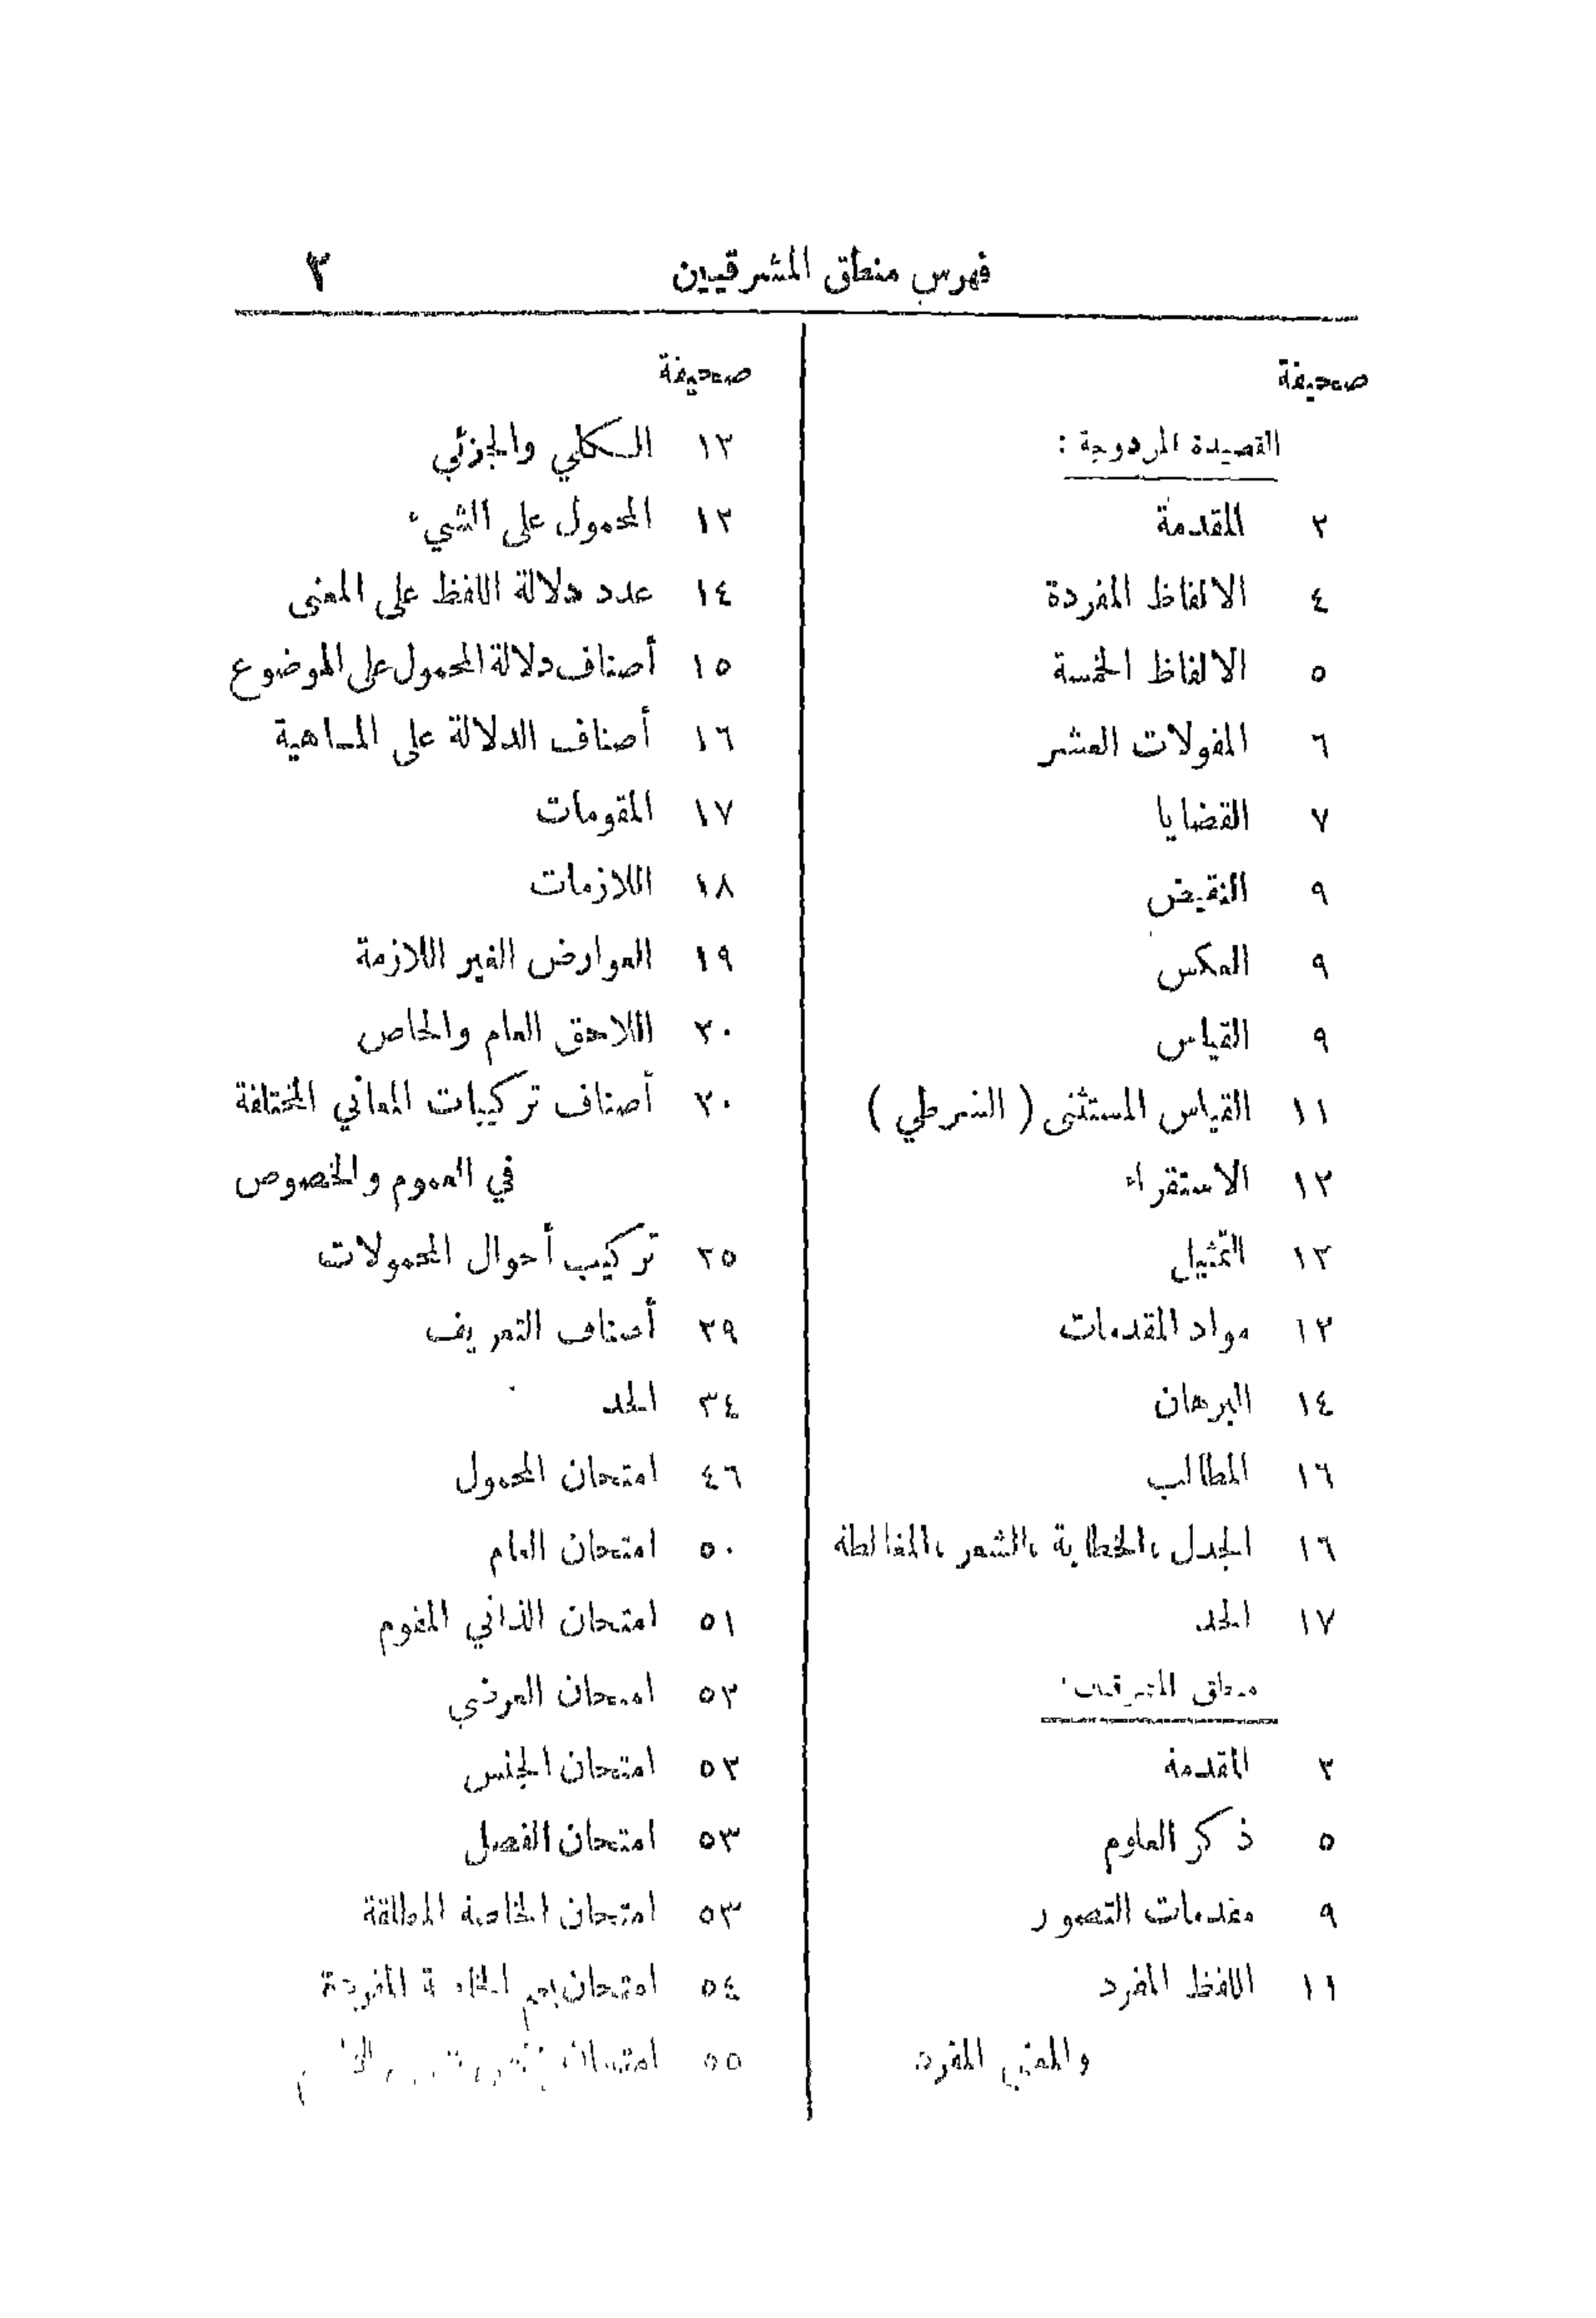 فهرس منطق المشرقيين ٣
صحيفة
القصيدة المزدوجة :
٢ المقدمة
٤ الالفاظ المفردة
٥ الالفاظ الخمسة
٦ المقولات العشر
٧ القضايا
٩ النقيض
٩ العكس
٩ القياس
١١ القياس المستثنى ( الشرطي )
١٢ الاستقراء
١٣ التمثيل
١٣ مواد المقدمات
١٤ البرهان
١٦ المطالب
١٦ الجدل ، الخطابة ، الشعر ، المغالطة
١٧ الحد
منطق المشرقيين
٢ المقدمة
٥ ذكر العلوم
٩ مقدمات التصور
١١ اللفظ المفرد
والمعنى المفرد
صحيفة
١٢ الكلي والجزئي
١٢ المحمول على الشيء
١٤ عدد دلالة اللفظ على المعنى
١٥ أصناف دلالة المحمول على الموضوع
١٦ أصناف الدلالة على الماهية
١٧ المقومات
١٨ اللازمات
١٩ العوارض الغير اللازمة
٢٠ اللاحق العام والخاص
٢٠ أصناف تركيبات المعاني المختلفة
في العموم والخصوص
٢٥ تركيب أحوال المحمولات
٢٩ أصناف التعريف
٣٤ الحد
٤٦ امتحان المحمول
٥٠ امتحان العام
٥١ امتحان الذاتي المقوم
٥٢ امتحان العرضي
٥٢ امتحان الجنس
٥٣ امتحان الفصل
٥٣ امتحان الخاصة المطلقة
٥٤ امتحان الخاصة المفردة
٥٥ امتحان